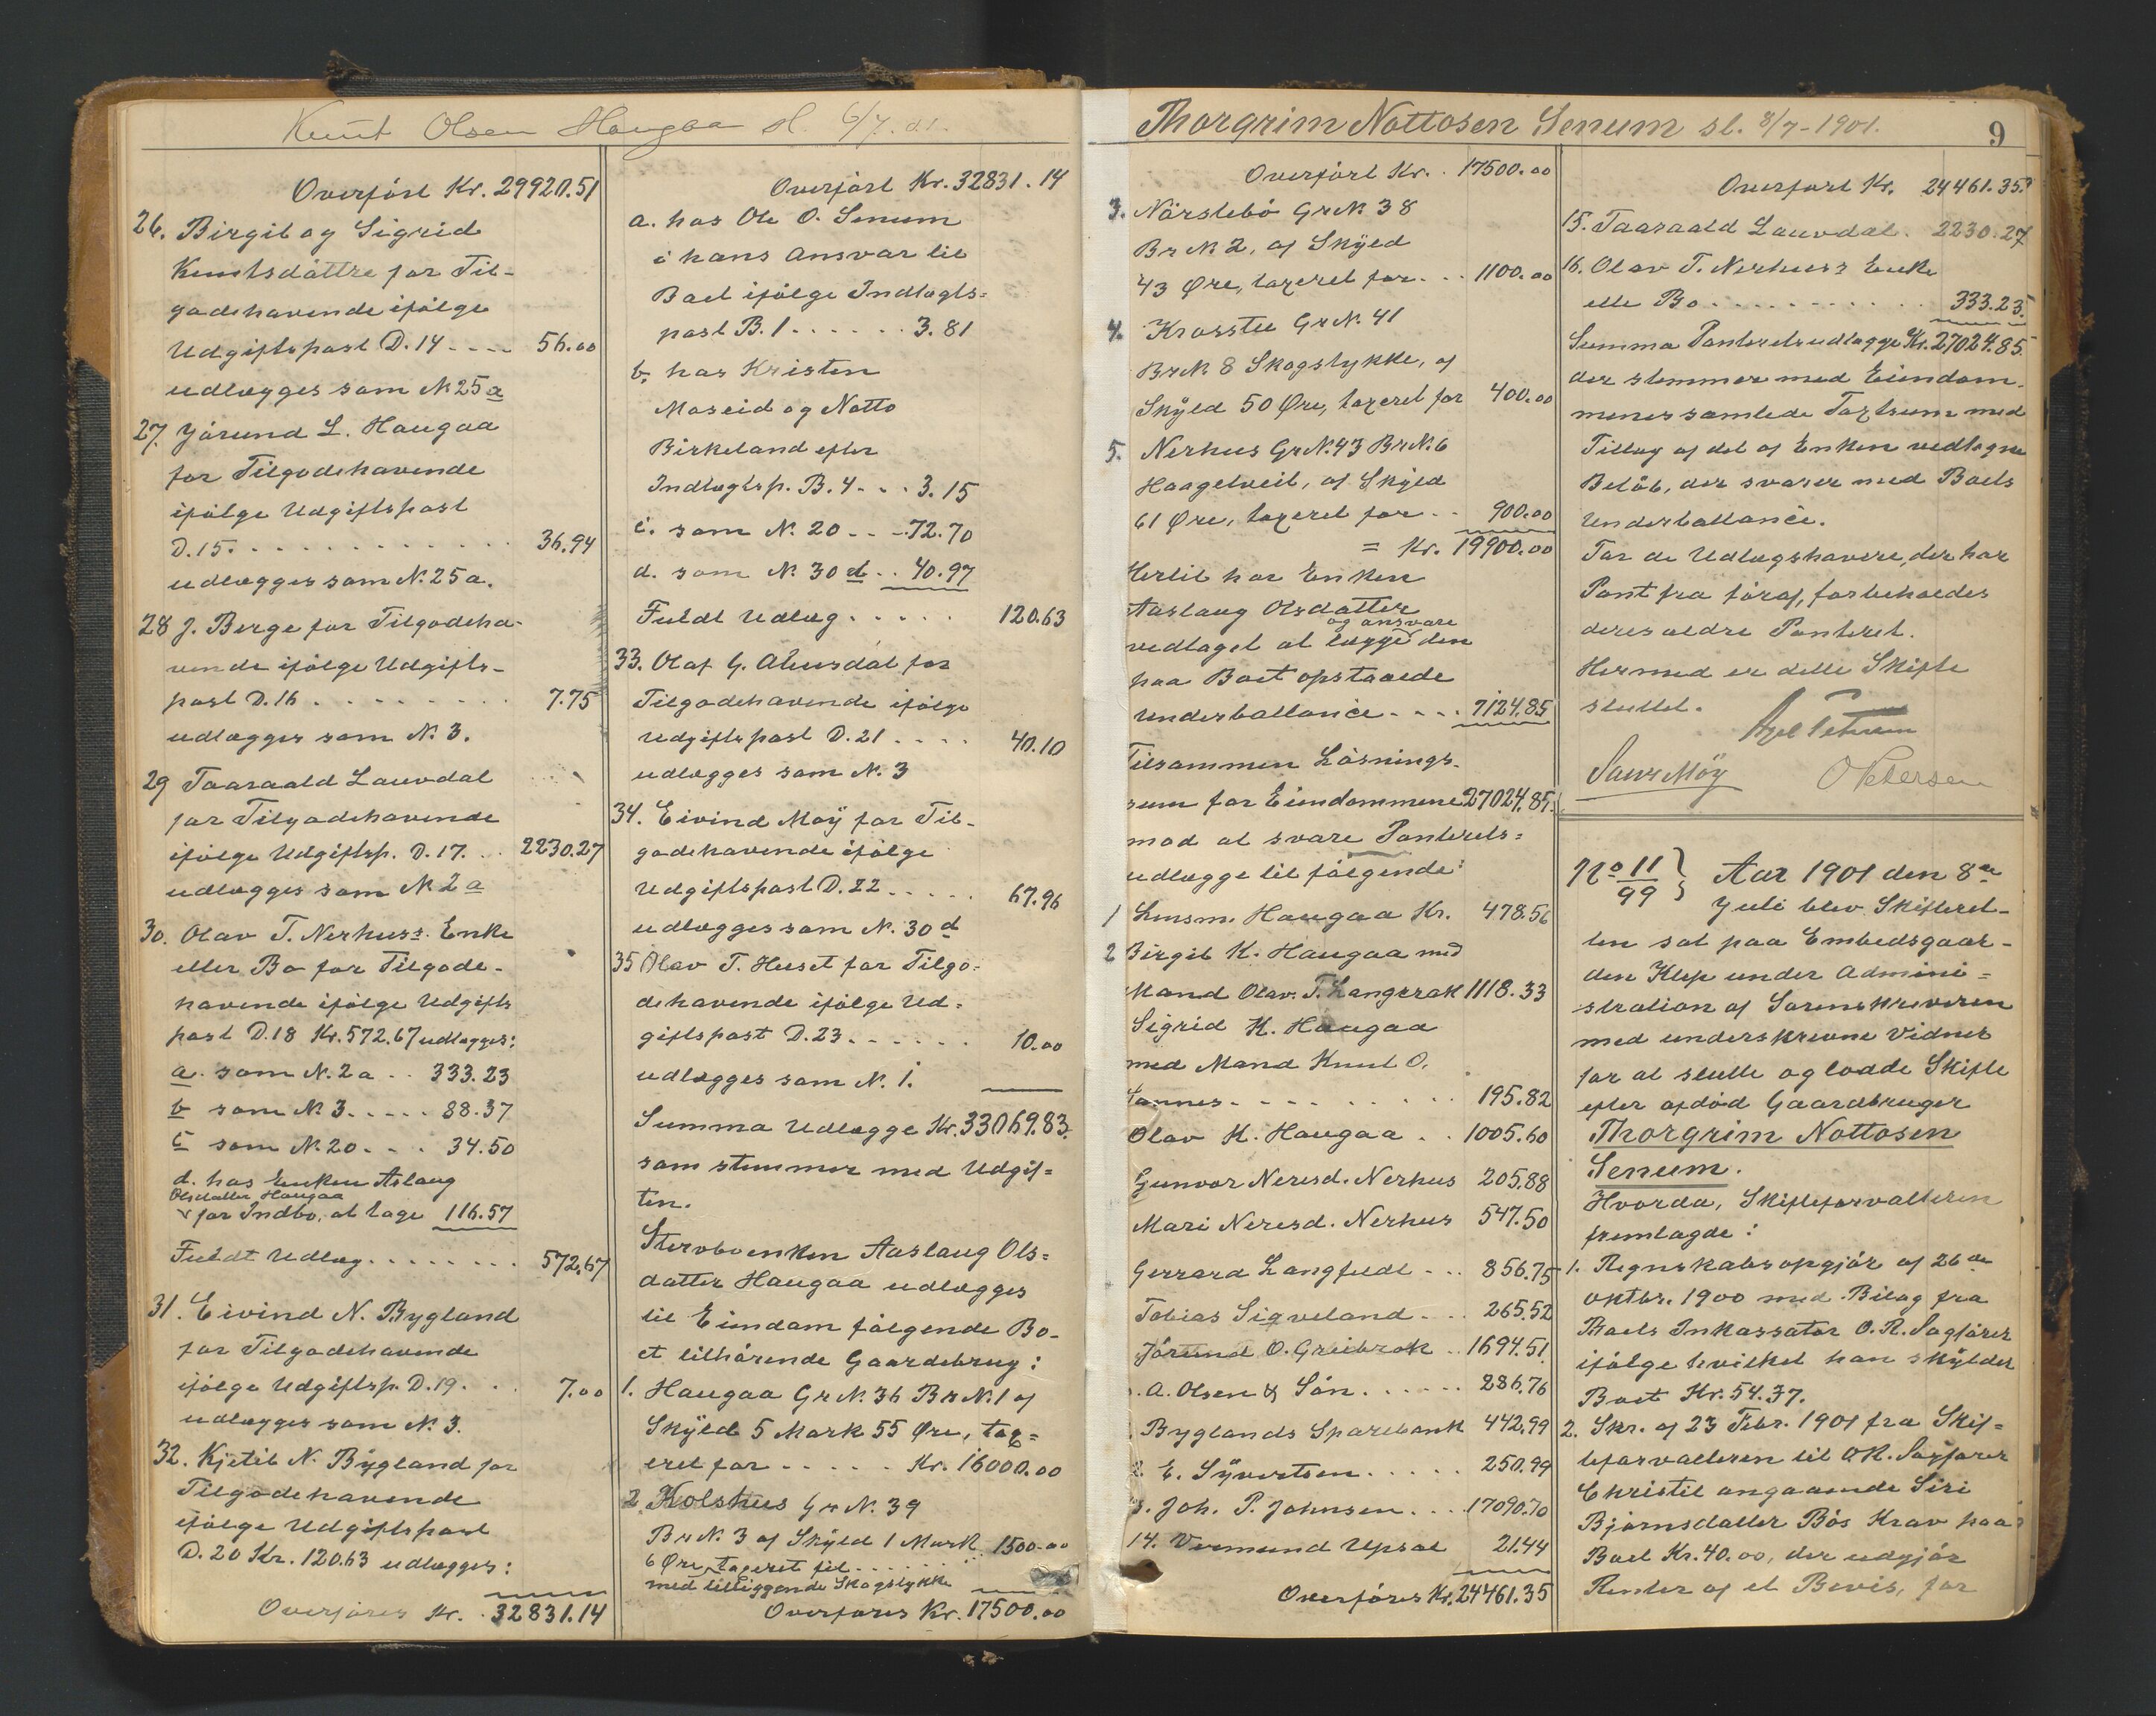 Knut Olsen Haugaa sl. 6/7.01.
Overført Kr. 29920.51
26. Birgit og Sigrid
Knutsdøttre for Til-
godehavende ifølge
Udgiftspost D.14 .... 56.00
udlægges som No 25 a
27. Jørund L. Haugaa
for Tilgodehavende
ifølge Udgiftspost
D.15. . . . . . . . . 36.94
udlægges som No. 25 a.
28 J. Berge for Tilgodeha-
vende ifølge Udgifts-
post D.16 . . . . . . . 7.75
udlægges som No. 3.
29 Taaraald Lauvdal
for Tilgodehavende
ifølge Udgiftsp. D.17. . . 2230.27
udlægges som No 2 a
30. Olav T. Nerhus's Enke
eller Bo for Tilgode-
havende ifølge Udgifts
post D.18 Kr. 572.67 udlægges:
a. som No. 2 a . . 333.23
b som No 3. . . . . 88.37
c som No. 20 . . . 34.50
d. hos Enken Aslaug
Olsdatter Haugaa
for Indbo, at tage 116.57
Fuldt Udlæg. . . . . . . . 572.67
31. Eivind N. Bygland
for Tilgodehavende
ifølge Udgiftsp. D.19. . . 7.00
udlægges som No. 3.
32. Kjetil N. Bygland for
Tilgodehavende
ifølge Udgiftspost
D.20 Kr. 120.63 udlægges:
Overføres Kr. 32831.14
Overført Kr. 32831.14
a. hos Ole O. Senum
i hans Ansvar til
Boet ifølge Indtægts-
post B.1 . . . . . . 3.81
b. hos Kristen
Moseid og Notto
Birkeland efter
Indtægtsp. B.4 . . . 3.15
c. som No. 20 . . . 72.70
d. som No. 30 d . . 40.97
Fuldt Udlæg . . . . . 120.63
33. Olaf G. Aknesdal for
Tilgodehavende ifølge
Udgiftspost D.21 . . . . 40.10
udlægges som No. 3
34. Eivind Moy for Til-
godehavende ifølge
Udgiftspost D.22 . . . . . 67.96
udlægges som No. 30 d
35 Olav T. Huset for Tilgo-
dehavende ifølge Ud-
giftspost D.23 . . . . . . 10.00
udlægges som No. 1.
Summa Udlægge Kr. 33069.83.
som stemmer med Udgif-
ten.
Stervboenken Aaslaug Ols-
datter Haugaa udlægges
til Eiendom følgende Bo-
et tilhørende Gaardebrug:
1. Haugaa Gr No. 36 Br No. 1 af
Skyld 5 Mark 55 Øre, tax-
eret for . . . . . Kr. 16000.00
2 Kolshus Gr No. 39
Br No. 3 af Skyld 1 Mark 1500.00
6 Øre, taxeret til . . .
med tilliggende Skogstykke
Overføres Kr. 17500.00
Thorgrim Nottosen Senum sl. 8/7-1901.
9
Overført Kr. . 17500.00
3. Nørstebø Gr No 38
Br No 2, af Skyld
43 Øre, taxeret for . . . 1100.00
4. Krosstu Gr No. 41
Br No. 8 Skogstykke, af
Skyld 50 Øre, taxeret for 400.00
5. Nerhus Gr No. 43 Br No. 6
Haagetveit, af Skyld
61 Øre, taxeret for . . 900.00
= Kr. 19900.00
Hertil har Enken
Aaslaug Olsdatter
og ansvare
vedtaget at lægge den
paa Boet opstaaede
Underballance . . . . 7124.85
Tilsammen Løsnings-
sum for Eiendommene 27024.85.
mod at svare Panterets-
udlægge til følgende:
1 Lensm. Haugaa Kr. 478.56
2 Birgit K. Haugaa med
Mand Olav. T. Langerak 1118.33
Sigrid K. Haugaa
med Mand Knut O.
. . . . . . . . . 195.82
Olav K. Haugaa . . 1005.60
Gunvor Neresd. Nerhus 205.88
Mari Neresd. Nerhus 547.50
Gerrard Langfeldt . . . 856.75
Tobias Sigveland . . . 265.52
Jørund O. Greibrok . . 1694.51
A. Olsen & Søn . . . . . . 286.76
Byglands Sparebank 442.99
E. Syvertsen . . . . . 250.99
Joh. P. Johnsen . . . 17090.70
14. Vermund Upsal 21.44
Overføres Kr. 24461.35
Overført Kr. 24461.35
15. Taaraald Lauvdal . 2230.27
16. Olav T. Nerhus's Enke
elle Bo . . . . . . . . . . 333.23
Summa Panteretsudlægge Kr. 27024.85.
der stemmer med Eiendom-
menes samlede Taxtsum med
Tillæg af det af Enken vedtagne
Beløb, der svarer med Boets
Underballance.
For de Udlægshavere, der har
Pant fra føraf, forbeholdes
deres ældre Panteret.
Hermed er dette Skifte
sluttet.
Axel Petersen
Møy
O Petersen
No 11/99 } Aar 1901 den 8de
Juli blev Skifteret-
ten sat paa Embedsgaar-
den Klep under Admini-
stration af Sorenskriveren
med underskrevne Vidner
for at slutte og lodde Skifte
efter afdød Gaardbruger
Thorgrim Nottosen
Senum.
Hvorda, Skifteforvalteren
fremlagde:
1. Regnskabsopgjør af 26de
oktbr. 1900 med Bilag fra
Boets Inkassator O. R. Sagfører
ifølge hvilket han skylder
Boet Kr. 54.37.
2. Skr. af 23 Febr. 1901 fra Skif-
teforvalteren til O R. Sagfører
Christil angaaende Siri
Bjørnsdatter Bøs Krav paa
Boet Kr. 40.00, der udgjør
Renter af et Bevis, for